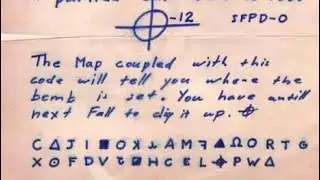 -12 SFPD-0
The Map coupled with this
code will tell you where the
bomb is set. You have untill
next Fall to dig it up. ⌖
C Δ J I ■ O ʞ ⅄ A M ꟻ ▲ Ω O R T G
X ⊙ F D V ◪ ⊞ H C E L ⌖ P W Δ